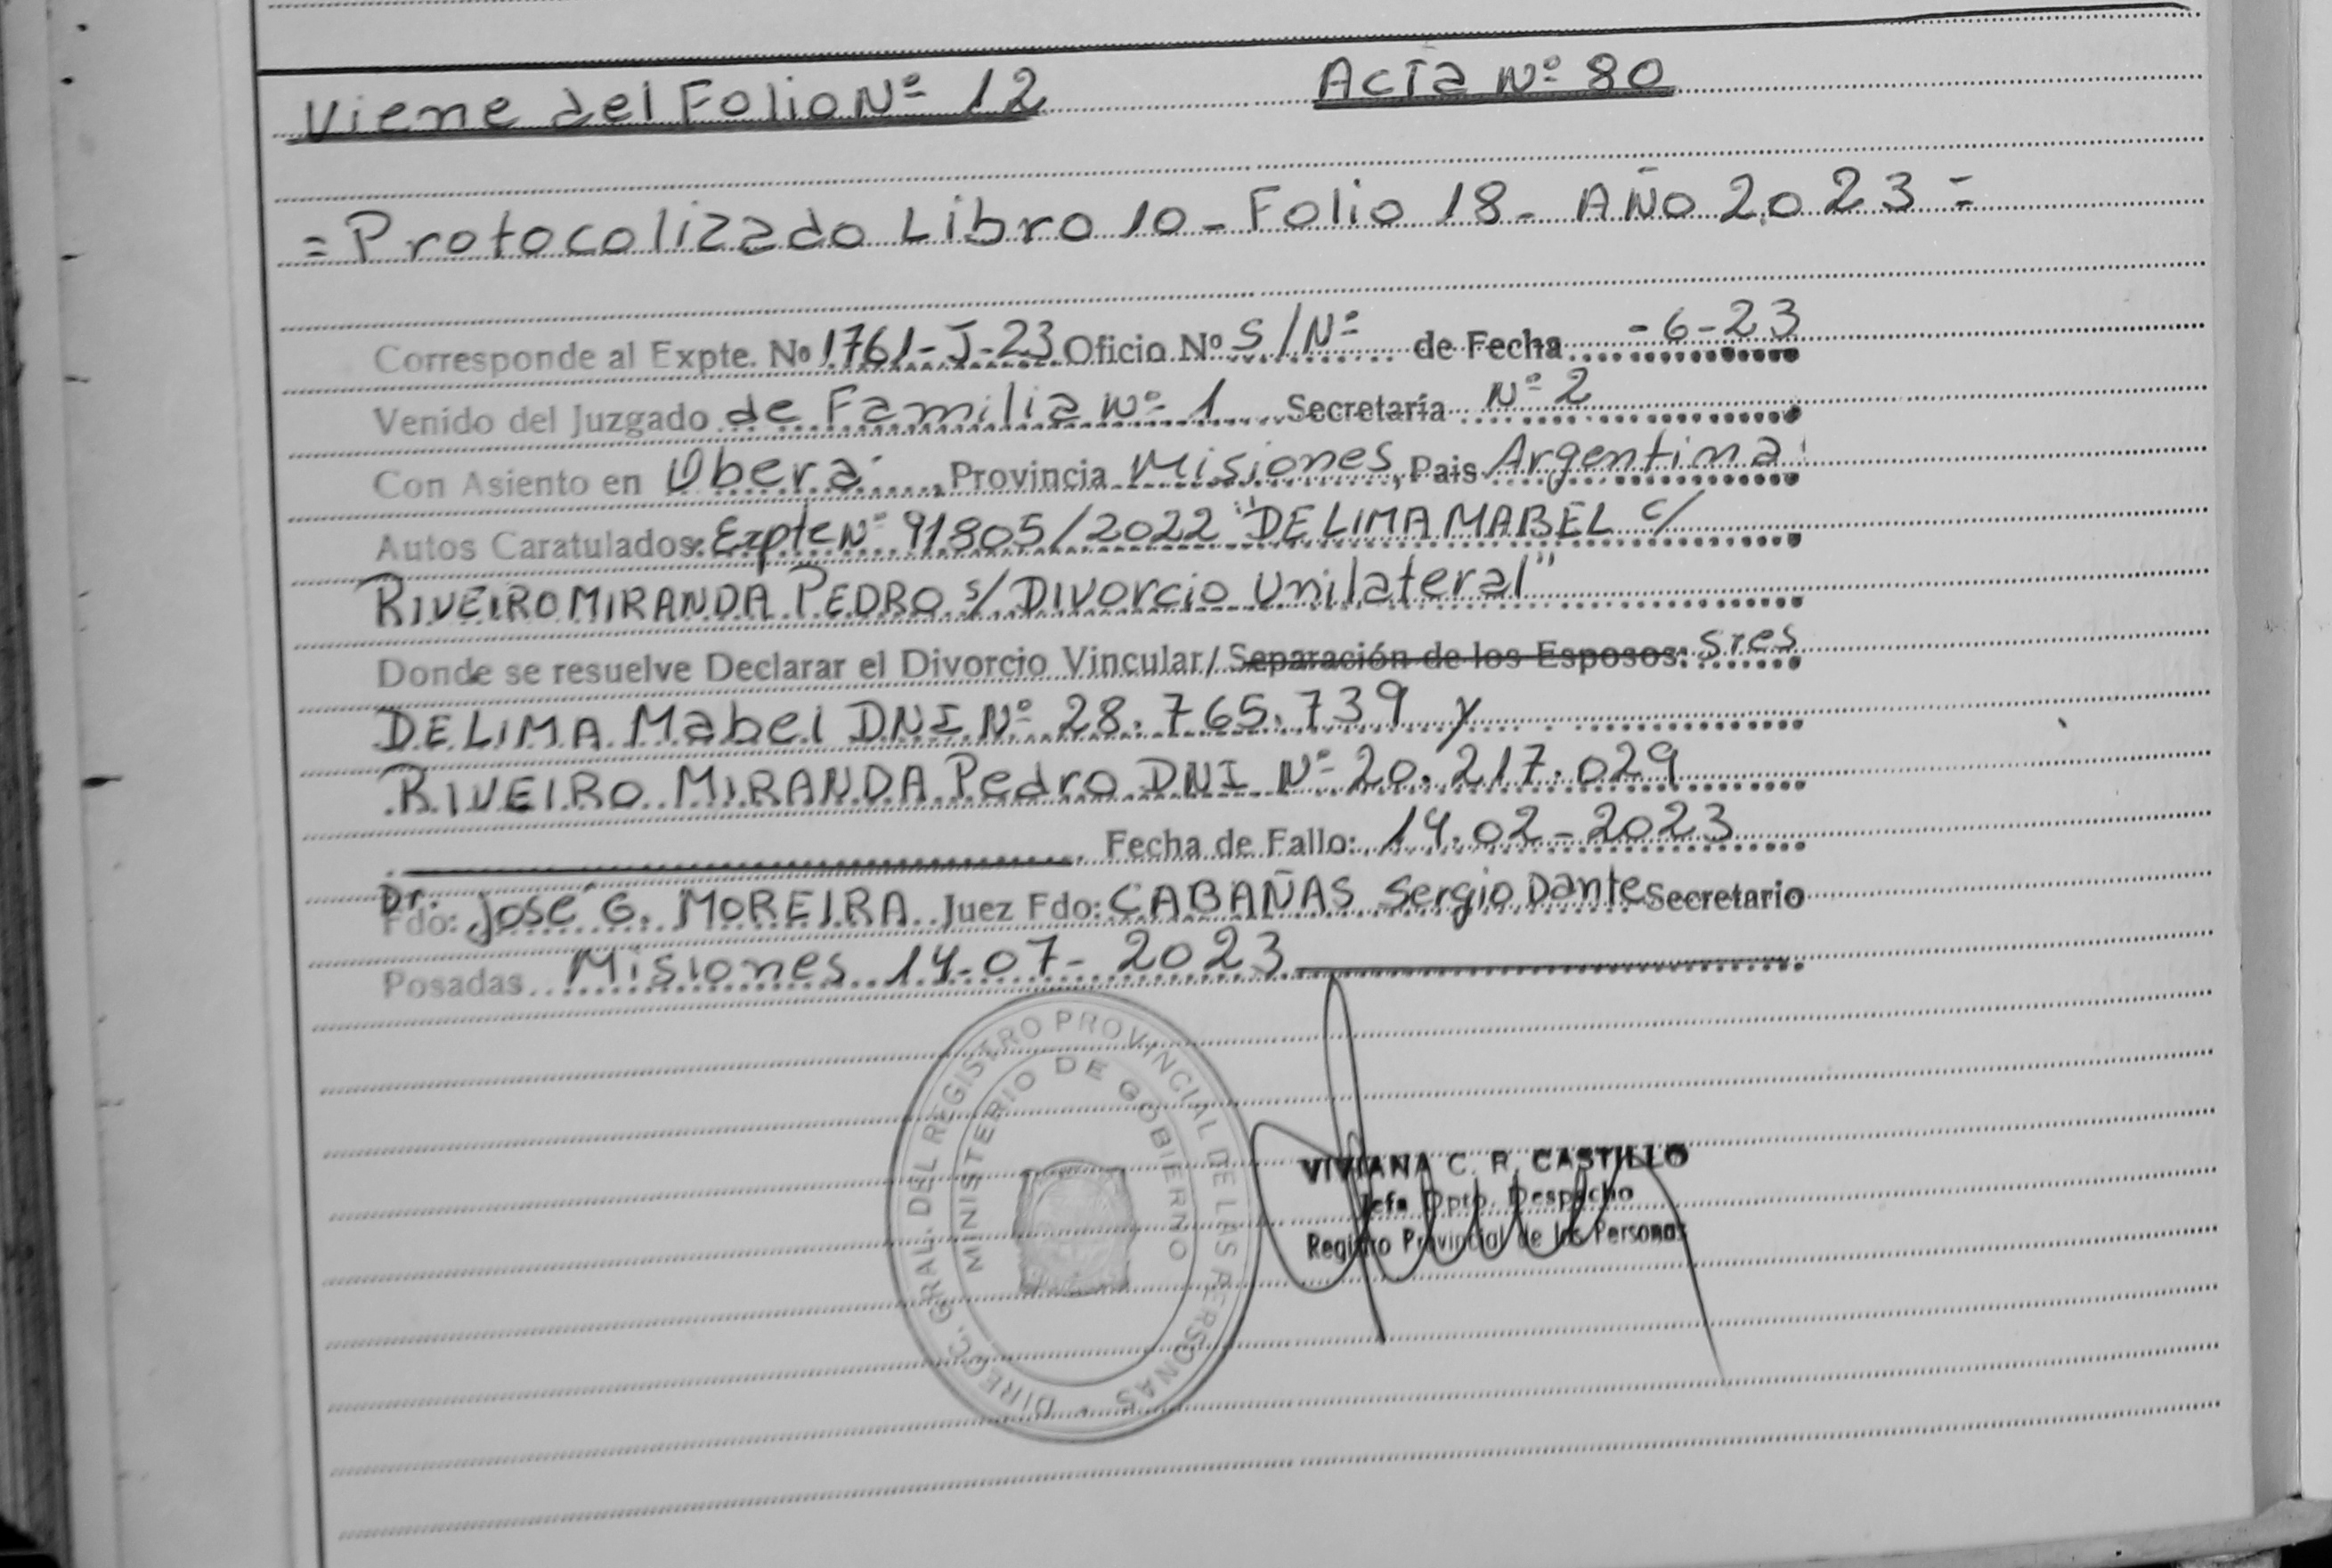 Viene del Folio Nº 12 Acta Nº 80
= Protocolizado Libro 10 - Folio 18 - AÑO 2023 =
Corresponde al Expte. Nº 1761-J-23 Oficio Nº S/Nº de Fecha -6-23
Venido del Juzgado de Familia Nº 1 Secretaría Nº 2
Con Asiento en Oberá, Provincia Misiones, Pais Argentina
Autos Caratulados: Expte Nº 91805/2022 "DE LIMA MABEL c/
RIVEIRO MIRANDA PEDRO s/ Divorcio Unilateral"
Donde se resuelve Declarar el Divorcio Vincular/ Separación de los Esposos: Sres
DE LIMA Mabel DNI Nº 28.765.739 y
RIVEIRO MIRANDA Pedro DNI Nº 20.217.029
Fecha de Fallo: 14.02-2023
Fdo: Dr. José G. MOREIRA Juez Fdo: CABAÑAS Sergio Dante Secretario
Posadas Misiones 14-07-2023
DIRECC. GRAL. DEL REGISTRO PROVINCIAL DE LAS PERSONAS
MINISTERIO DE GOBIERNO
VIVIANA C. R. CASTILLO
Jefa Dpto. Despacho
Registro Provincial de las Personas